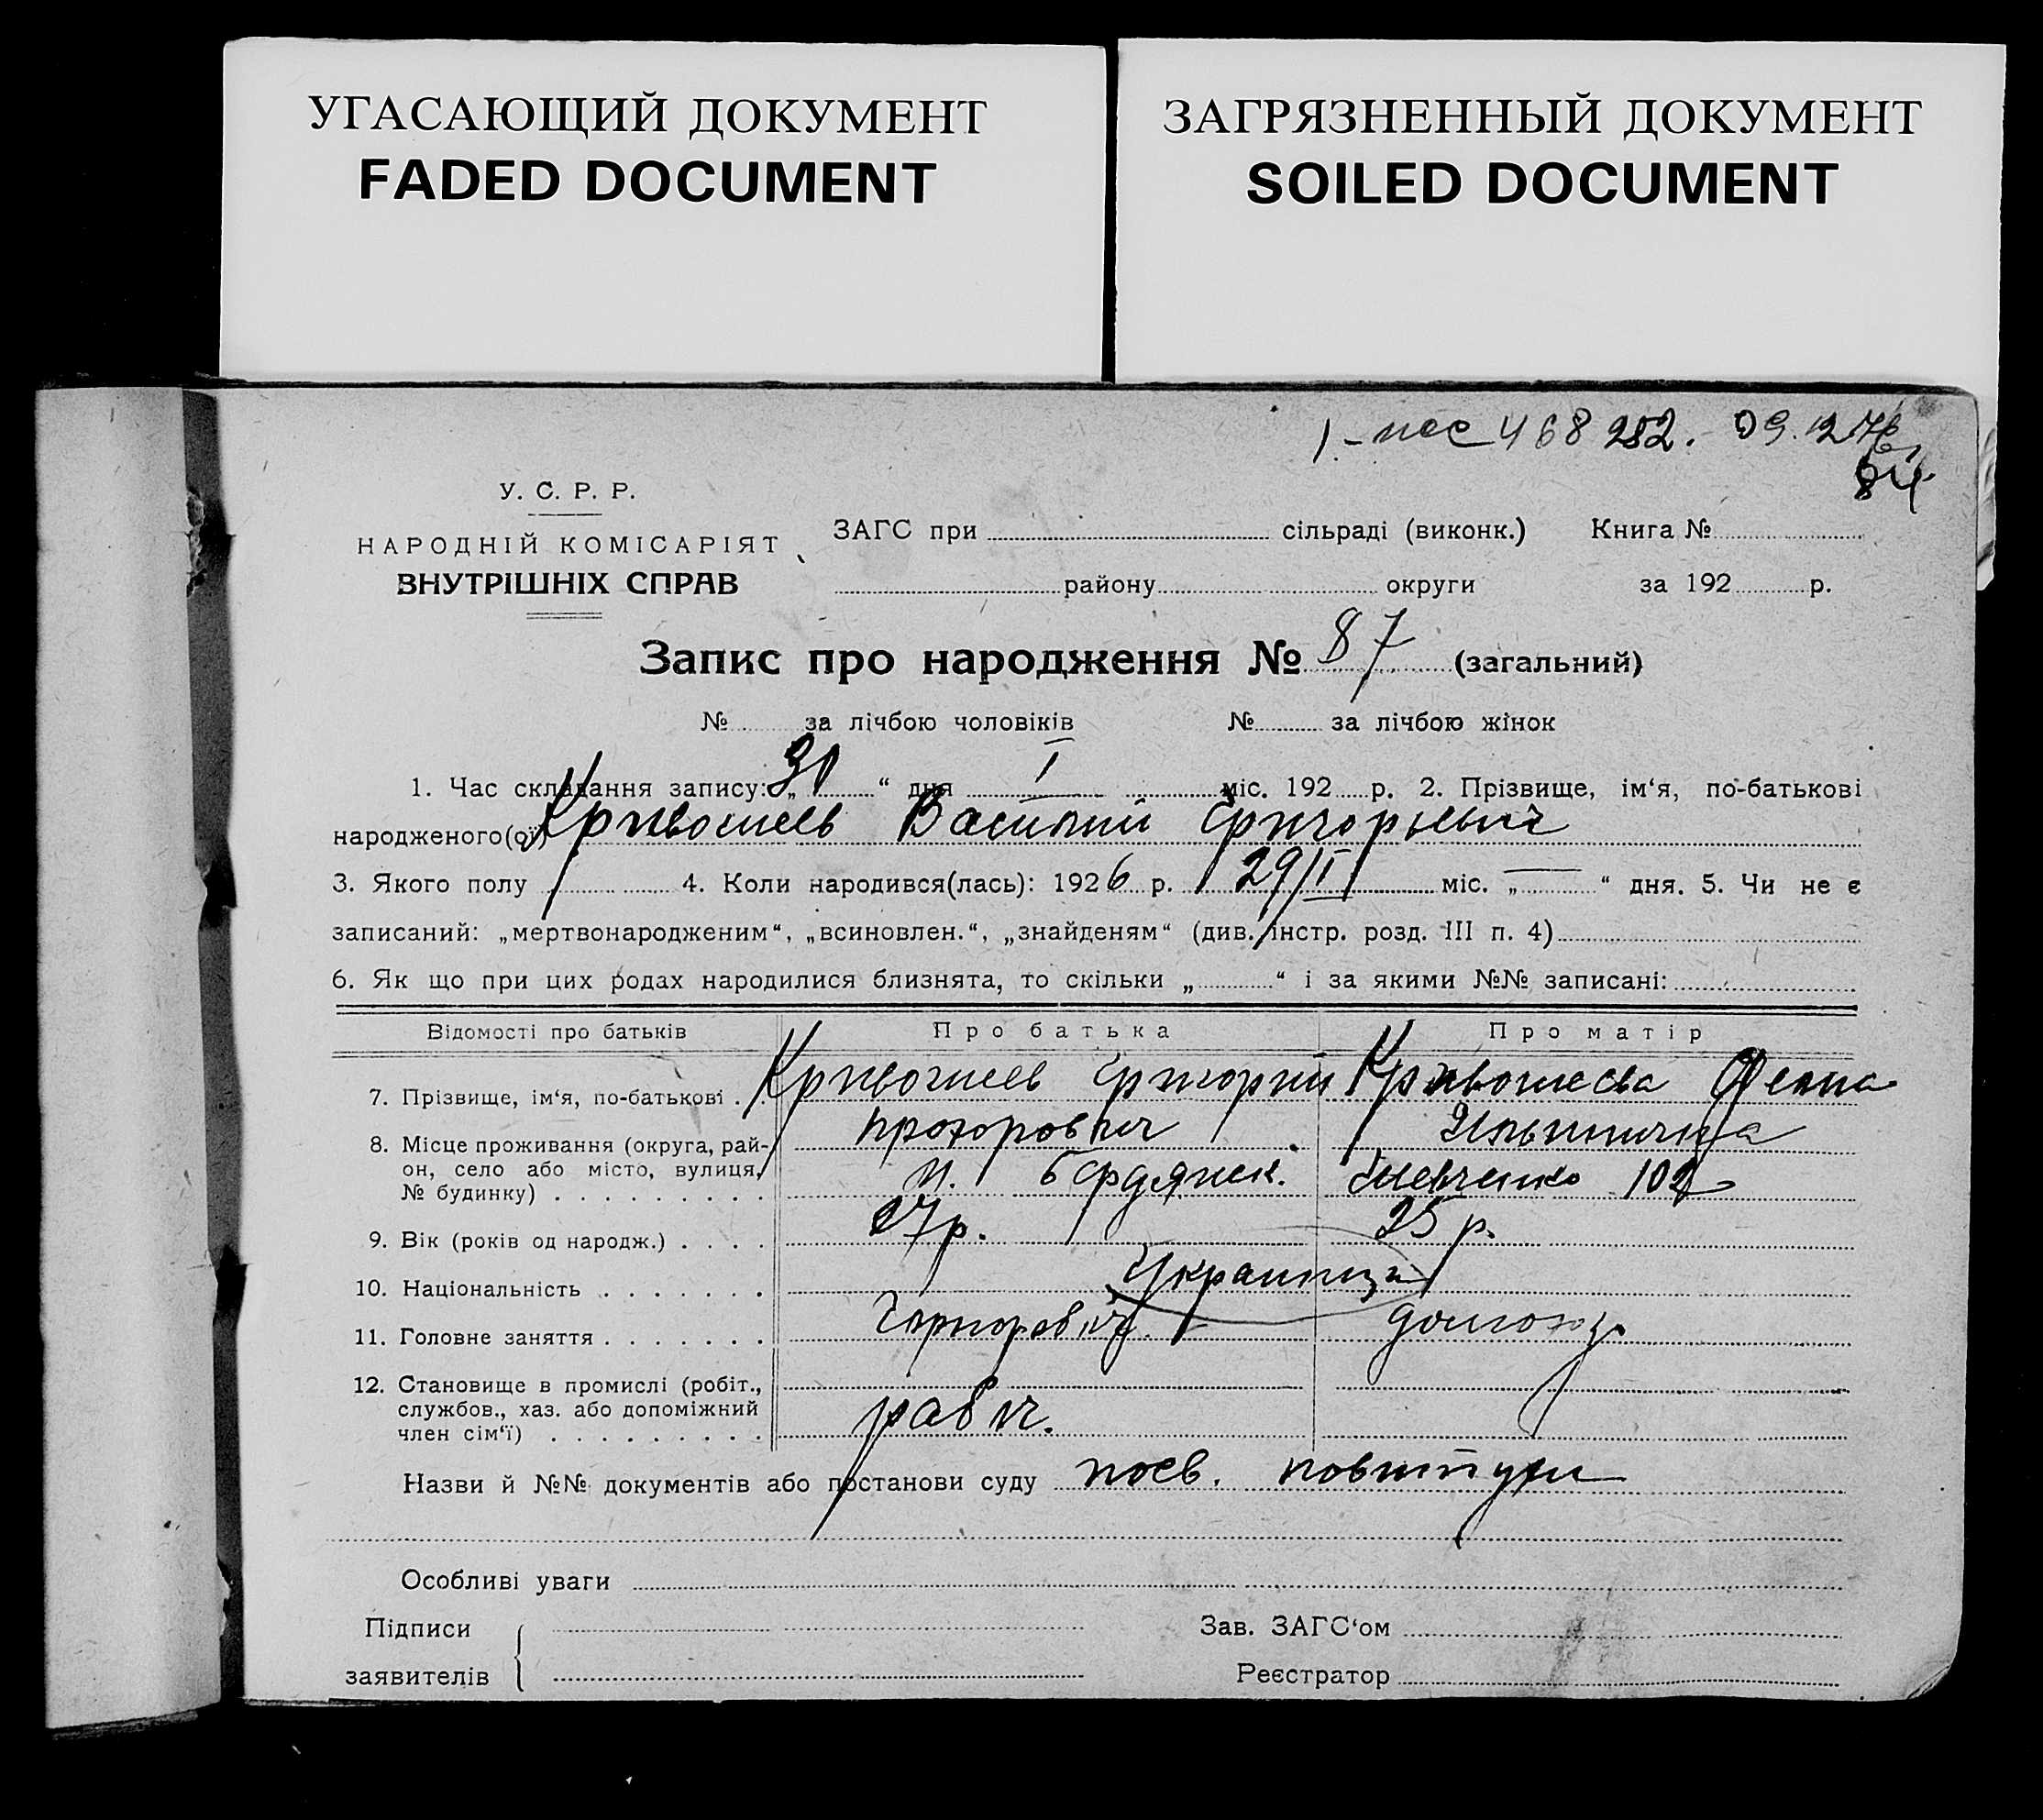 УГАСАЮЩИЙ ДОКУМЕНТ
FADED DOCUMENT
ЗАГРЯЗНЕННЫЙ ДОКУМЕНТ
SOILED DOCUMENT
468 282. 09.12.76
84
У. С. Р. Р.
НАРОДНІЙ КОМІСАРІЯТ
ВНУТРІШНІХ СПРАВ
ЗАГС при сільраді (виконк.) Книга №
району округи за 192 р.
Запис про народження № 87 (загальний)
№ за лічбою чоловіків № за лічбою жінок
1. Час складання запису: „30“ дня I міс. 192 р. 2. Прізвище, ім‘я, по-батькові
народженого(ої) Кривошеев Василий Григорьевич
3. Якого полу 4. Коли народився(лась): 1926 р. 29/I міс. „—“ дня. 5. Чи не є
записаний: „мертвонародженим“, „всиновлен.“, „знайденям“ (див. інстр. розд. III п. 4)
6. Як що при цих родах народилися близнята, то скільки „ “ і за якими №№ записані:
Відомості про батьків Про батька Про матір
7. Прізвище, ім‘я, по-батькові . . Кривошеев Григорий Кривошеева
8. Місце проживання (округа, район, село або місто, вулиця, № будинку) . . . . . . . . . Прохорович Ильинична
м. Бердянск. Шевченко 102
9. Вік (років од народж.) . . . . 27 р. 25 р.
10. Національність . . . . . . . Украинцы
11. Головне заняття . . . . . . . домохоз.
12. Становище в промислі (робіт., службов., хаз. або допоміжний член сім‘ї) . . . . . . . . .
Назви й №№ документів або постанови суду посв. повитухи
Особливі уваги
Підписи
заявителів
Зав. ЗАГС‘ом
Реєстратор